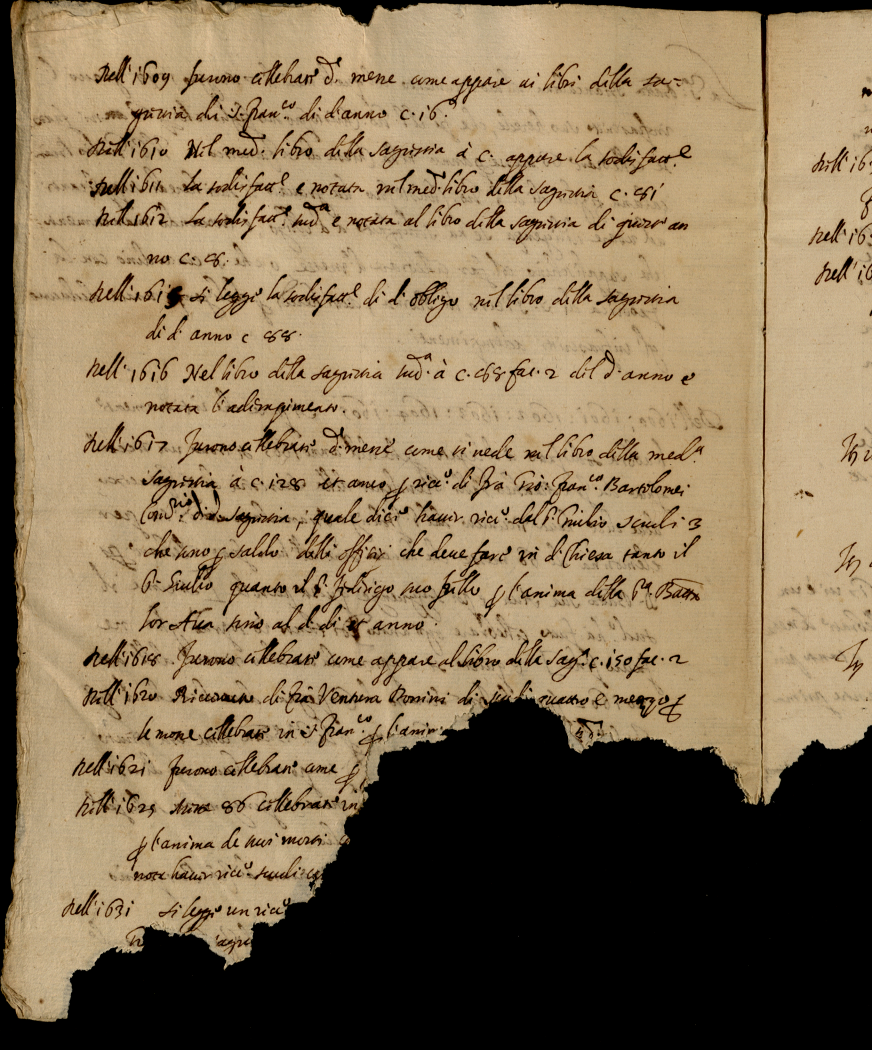 nell' 1609 furono cellebrate d.e messe come appare ai libri della sa=
gristia di S. Fran.co di d. anno c. 16.
nell' 1610 Nel med.o libro della sagristia à c. appare la sodisfatt.e
nell' 1611 la sodisfatt.e e notata nel med.o libro della sagristia c. 81
nell' 1612 la sodisfatt.e sud.a e notata al libro della sagristia di quest' an
no c. 8.
nell' 161 si legge la sodisfatt.e di d. obligo nel libro della sagristia
di d. anno c 88.
nell' 1616 Nel libro della sagristia sud.a à c. 68 fac. 2 del d. anno e
notata l'adempimento.
nell' 1617 furono cellebrate d.e messe come si vede nel libro della med.a
sagristia à c. 128 et anco p ricev.o di frà Gio: Fran.co Bartolomei
di d. sagristia, quale dice haver ricev.o dal S. Giulio scudi 3
che sono p saldo delli offitij che deve fare in d. Chiesa tanto il
S. Giulio quanto il S. Federigo suo f.ello p l'anima della S.a
sino al d. di et anno.
nell' 1618 furono cellebrate come appare al libro della sag.a c. 150 fac. 2
nell' 1620 di frà Ventura di scudi quattro e mezzo p
le messe cellebrate in S. Fran.co p l'anim
nell' 1621 furono cellebrate come p
nell' 1625 messe 86 cellebrate in
p l'anima de suoi morti
nota haver ricev.o scudi
nell' 1631 si legge un ricev.o
nell' 16
nell' 16
nell' 16